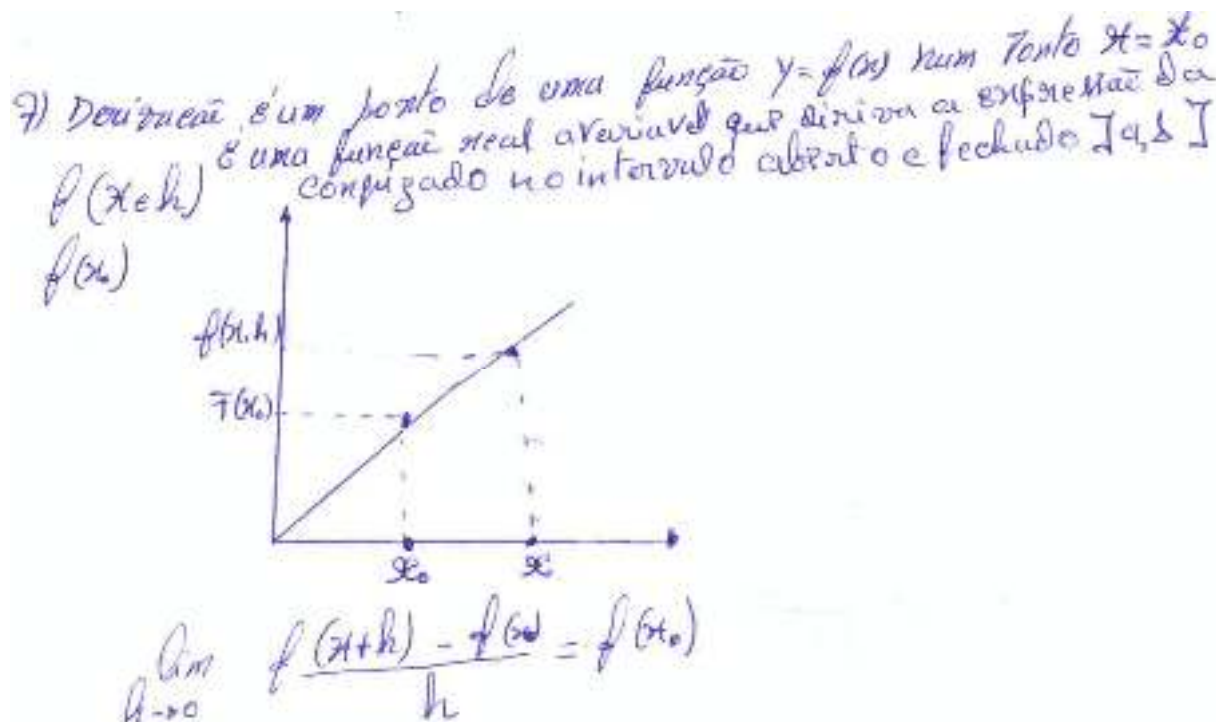 7) Derivacaõ é um ponto de uma função y=f(x) num Ponto x=x₀
é uma funçaõ real avariavel que diriva a expressaõ da
f(x e h) conjugado no intervalo aberto e fechado ]a,b]
f(x₀)
f(x,h)
f(x₀)
x₀ x
lim f(x+h) - f(x) = f(x₀)
h→0 h